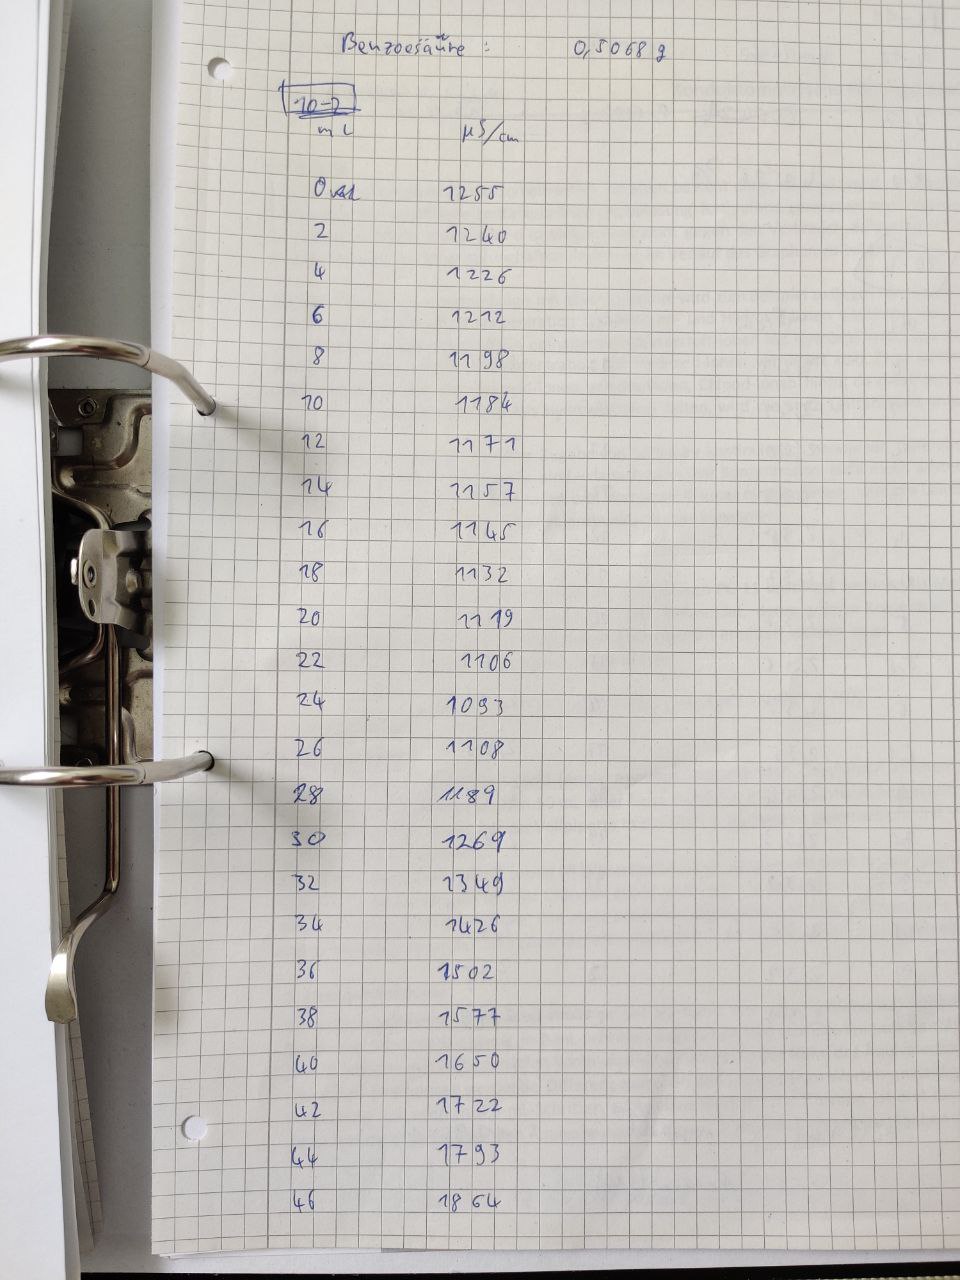 Benzoesäure : 0,5068 g
10-2
mL µS/cm
0 1255
2 1240
4 1226
6 1212
8 1198
10 1184
12 1171
14 1157
16 1145
18 1132
20 1119
22 1106
24 1093
26 1108
28 1189
30 1269
32 1349
34 1426
36 1502
38 1577
40 1650
42 1722
44 1793
46 1864